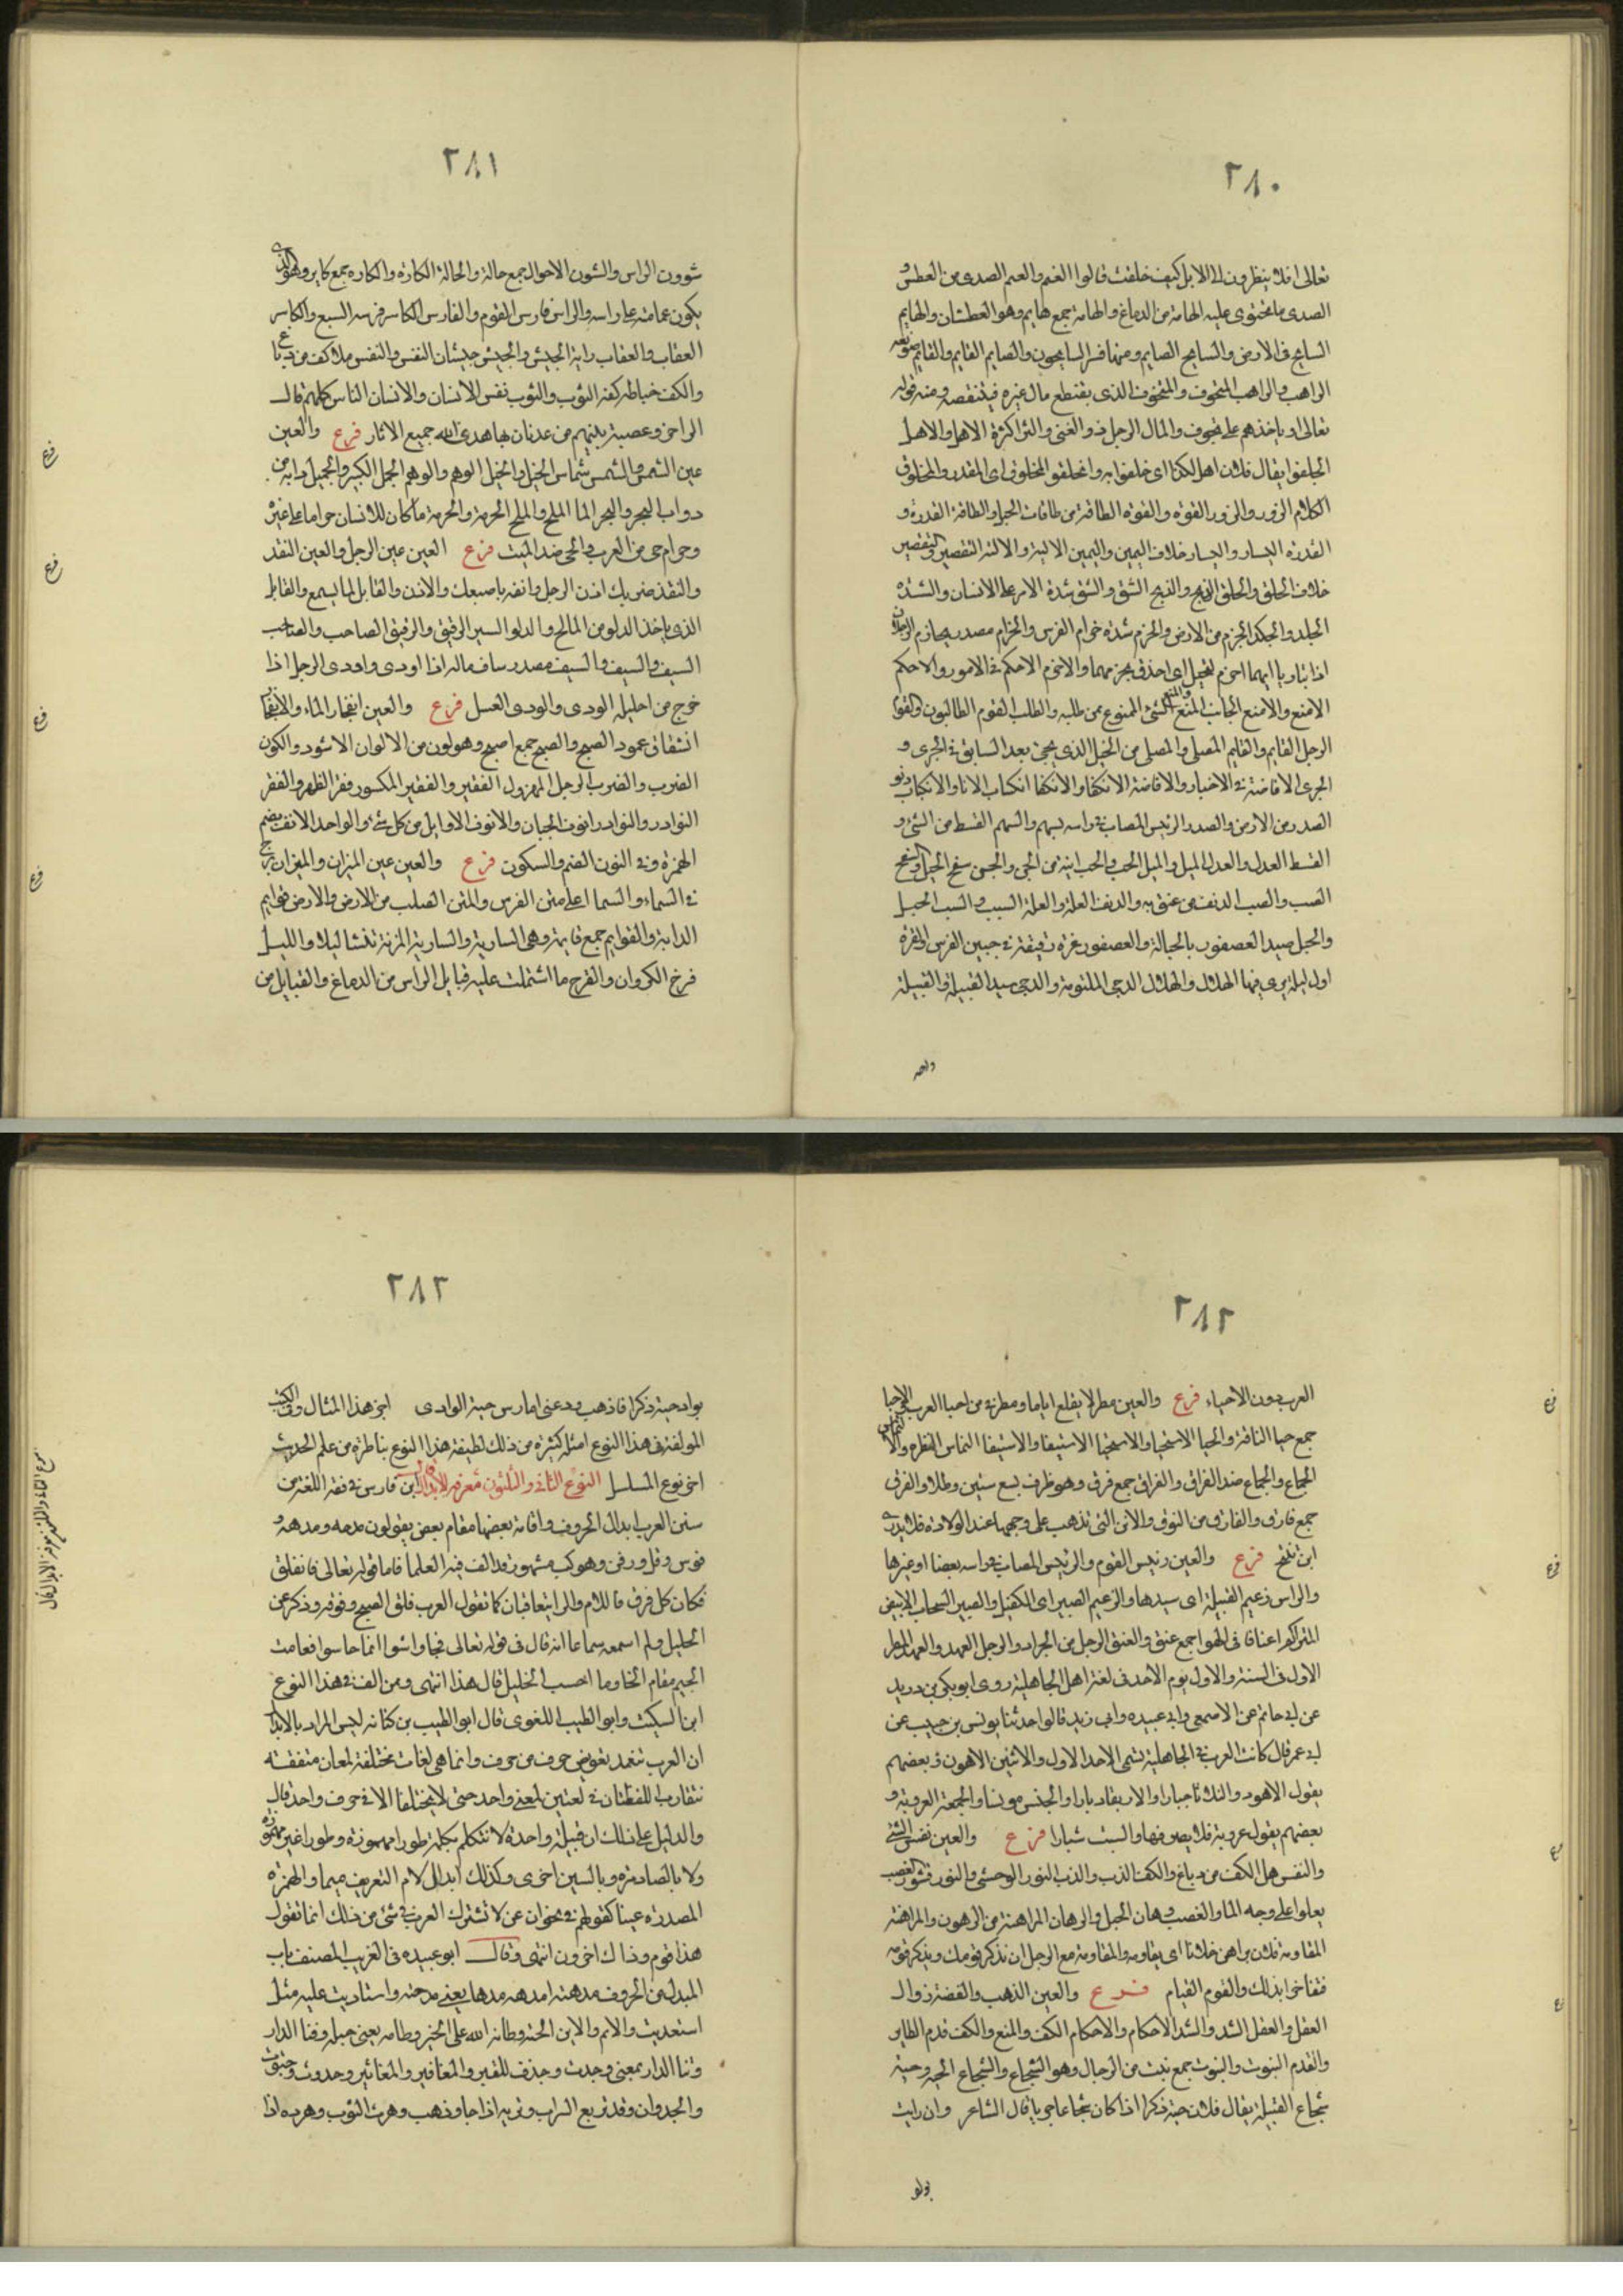 ٢٨٠
تعالى افلا ينظرون الى الابل كيف خلقت قالوا الغيم والغيم الصدى من العطش و
الصدى ما تحتوى عليه الهامة من الدماغ والهامة جمع هايم وهو العطشان والهايم
السايح فى الارض والسايح الصايم ومنها فسر السايحون والصايم القايم والقايم صومعة
الراهب والراهب المتخوف والمتخوف الذى يقتطع مال غيره فيتنقصه ومنه قوله
تعالى او ياخذهم على تخوف والمال الرجل ذو الغنى والثرا كثرة الاهل والاهل
الخليق يقال فلان اهل لكذا اى خليق به والخليق المخلوق اى المقدر والمخلوق
الكلام الزور والزور القوة والقوة الطاقة من طاقات الحبل والطاقة القدرة و
القدرة اليسار واليسار خلاف اليمين واليمين الالية والالية التقصير والتقصير
خلاف الحلق والحلق الذبح والذبح الشق والشق شدة الامر على الانسان والشدة
الجلد والجلد الحزم من الارض والحزم شدة حزام الفرس والحزام مصدر يحازم الرجلان
اذا تباريا ايهما احزم للخيل اى احذق بحزمها والاحزم الاحكم فى الامور والاحكم
الامنع والامنع الجانب المنيع والمنيع الشئ الممنوع من طلبه والطلب القوم الطالبون والقوم
الرجل القايم والقايم المصلى والمصلى من الخيل الذى يجئ بعد السابق فى الجرى و
الجرى الافاضة فى الاخبار والافاضة الانكفا والانكفا انكباب الانا والانكباب دنو
الصدر من الارض والصدر الرئيس المصاب فى راسه بسهم والسهم القسط من الشئ و
القسط العدل والعدل الميل والميل الحب والحب انية من الجر والجر سفح الجبل وسفح
الصب والصب الدنف من عشق به والدنف العلة والعلة السبب والسبب الحبل
والحبل صيد العصفور بالحبالة والعصفور غرة دقيقة فى جبين الفرس والغرة
اول ليلة يرى فيها الهلال والهلال الرحى المثلومة والرحى سيد القبيلة والقبيلة
٢٨١
شوون الراس والشون الاحوال جمع حالة والحالة الكارة والكارة جمع كاير وهو الذى
يكون عمامته على راسه والراس فارس القوم والفارس الكاسر فرسه السبع والكاسر
العقاب والعقاب راية الجيش والجيش جيشان النفس والنفس ملا كف من دباغ
والكف خياطة كفة الثوب والثوب نفس الانسان والانسان الناس كلهم قال
الراجز وعصبة نبيهم من عدنان بها هدى الله جميع الانان فرع والعين
عين الشمس والشمس شماس الخيل والخيل الوهم والوهم الجمل الكبير والجمل دابة من
دواب البحر والبحر الما الملح والملح الحرمة والحرمة ما كان للانسان حراما على غيره
وحرام حى من العرب والحى ضد الميت فرع العين عين الرجل والعين النقد
والنقد ضربك اذن الرجل وانفه باصبعك والاذن القابل لما يسمع والقابل
الذى ياخذ الدلو من الماتح والدلو السير الرفيق والرفيق الصاحب والصاحب
السيف والسيف والسيف مصدر ساف ماله اذا اودى واودى الرجل اذا
خرج من احليله الودى والودى الفسيل فرع والعين انفجار الماء والانفجار
انشقاق عمود الصبح والصبح جمع اصبح وهو لون من الالوان الاسود والكون
الضرب والضرب الرجل المهزول الفقير والفقير المكسور فقر الظهر والفقر
النوادر والنوادر انوف الجبال والانوف الاوايل من كل شئ والواحد الانف بضم
الهمزة وفى النون الضم والسكون فرع والعين عين الميزان والميزان برج
فى السماء والسما اعلى متن الفرس والمتن الصلب من الارض والارض قوايم
الدابة والقوايم جمع قايمة وهى السارية والسارية المزنة تنشا ليلا والليل
فرخ الكروان والفرخ ما اشتملت عليه قبايل الراس من الدماغ والقبايل من
فرع
فرع
فرع
فرع
٢٨٢
العرب دون الاحياء فرع والعين مطر لا يقلع اياما ومطر حى من احيا العرب والاحيا
جمع حيا الناقة والحيا الاستحيا والاستحيا الاستبقا والاستبقا التماس النظرة والتماس
الجماع والجماع ضد الفراق والفراق جمع فرق وهو ظرف يسع ستين رطلا والفرق
جمع فارق والفارق من النوق والاتن التى تذهب على وجهها عند الولادة فلا يدرى
اين تنتج فرع والعين رئيس القوم والرئيس المصاب فى راسه بعصا او غيرها
والراس زعيم القبيلة اى سيدها والزعيم الصبير اى الكفيل والصبير السحاب الابيض
المتراكم اعناقا فى الهوا جمع عنق والعنق الرجل من الجراد والرجل العهد والعهد المطر
الاول فى السنة والاول يوم الاحد فى لغة اهل الجاهلية روى ابو بكر بن دريد
عن ابى حاتم عن الاصمعى وابى عبيدة وابى زيد قالوا حدثنا يونس بن حبيب عن
ابى عمر قال كانت العرب فى الجاهلية تسمى الاحد الاول والاثنين الاهون وبعضهم
يقول الاهود والثلاثا جبارا والاربعا دبارا والخميس مونسا والجمعة العروبة و
بعضهم يقول عروبة فلا يصرفها والسبت شيارا فرع والعين نفس الشئ
والنفس مل الكف من دباغ والكف الذب والذب الثور الوحشى والثور قشور القصب
يعلوا على وجه الما والقصب رهان الخيل والرهان المراهنة من الرهون والمراهنة
المقاومة فلان يراهن فلانا اى يقاومه والمقاومة مع الرجل ان تذكر قومك ويذكر قومه
فتفاخرا بذلك والقوم القيام فرع والعين الذهب والفضة زوال
العقل والعقل الشد والشد الاحكام والاحكام الكف والمنع والكف قدم الطاير
والقدم الثبوت والثبوت جمع ثبت من الرجال وهو الشجاع والشجاع الحية وحية
شجاع القبيلة يقال فلان حية ذكر اذا كان شجاعا جريا قال الشاعر وان رايت
٢٨٣
بواد حية ذكرا فاذهب ودعنى امارس حية الوادى اخر هذا المثال وفى الكتب
المولفة فى هذا النوع امثلة كثيرة من ذلك لطيفة هذا النوع يناظره من علم الحديث
اخر نوع المسلسل النوع الثانى والثلثون معرفة الابدال قال ابن فارس فى فقه اللغة من
سنن العرب ابدال الحروف واقامة بعضها مقام بعض يقولون مدحه ومدهه و
فرس رفل ورفن وهو كثير مشهور قد الف فيه العلما فاما قوله تعالى فانفلق
فكان كل فرق فاللام والرا يتعاقبان كما تقول العرب فلق الصبح وفرقه وذكر عن
الخليل ولم اسمعه سماعا انه قال فى قوله تعالى فجاسوا انما حاسوا فقامت
الجيم مقام الحا وما احسب الخليل قال هذا انتهى وممن الف فى هذا النوع
ابن السكيت وابو الطيب اللغوى قال ابو الطيب من كتابه ليس المراد بالابدال
ان العرب تتعمد تعويض حرف من حرف وانما هى لغات مختلفة لمعان متفقة
تتقارب اللفظتان فى لغتين لمعنى واحد حتى لا يختلفا الا فى حرف واحد قال
والدليل على ذلك ان قبيلة واحدة لا تتكلم بكلمة طورا مهموزة وطورا غير مهموزة
ولا بالصاد مرة وبالسين اخرى وكذلك ابدال لام التعريف ميما والهمزة
المصدرة عينا كقولهم فى نحو ان عن لا تشترك العرب فى شئ من ذلك انما تقول
هذا قوم وذاك اخرون انتهى وقال ابو عبيده فى الغريب المصنف باب
المبدل من الحروف مدهته امدهه مدها يعنى مدحته واستاديت عليه مثل
استعديت والايم والاين الحية وطانه الله على الخير وطامه يعنى جبله وفنا الدار
وثنا الدار بمعنى وجدث وجدف للقبر والمغافير والمغاثير وجذوت وجثوت
والجذوان وقد تريع السراب وتريه اذا جا وذهب وهرت الثوب وهرده اذا
فرع
فرع